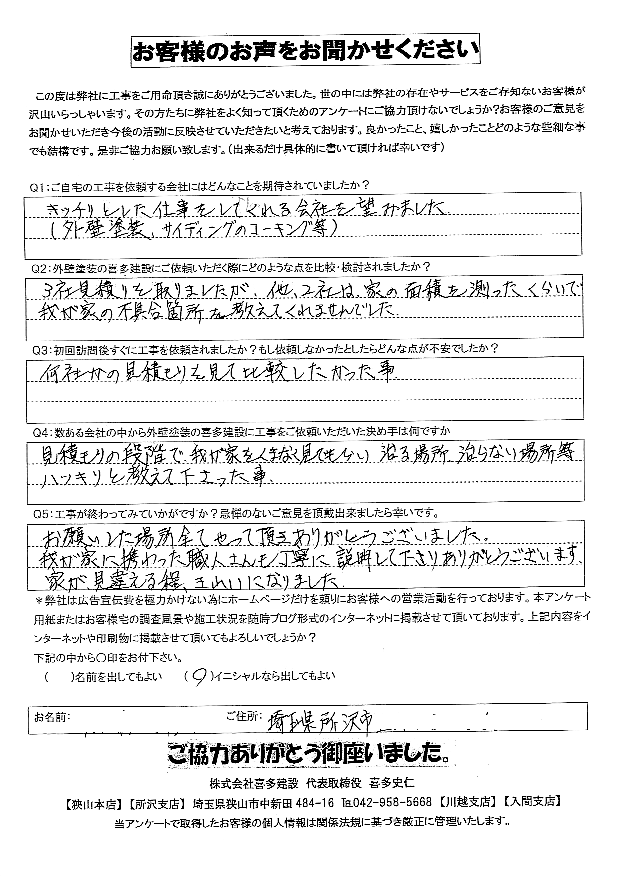 お客様のお声をお聞かせください
この度は弊社に工事をご用命頂き誠にありがとうございました。世の中には弊社の存在やサービスをご存知ないお客様が
沢山いらっしゃいます。その方たちに弊社をよく知って頂くためのアンケートにご協力頂けないでしょうか？お客様のご意見を
お聞かせいただき今後の活動に反映させていただきたいと考えております。良かったこと、嬉しかったことどのような些細な事
でも結構です。是非ご協力お願い致します。（出来るだけ具体的に書いて頂ければ幸いです）
Q1：ご自宅の工事を依頼する会社にはどんなことを期待されていましたか？
きっちりとした仕事をしてくれる会社を望みました
（外壁塗装、サイディングのコーキング等）
Q2：外壁塗装の喜多建設にご依頼いただく際にどのような点を比較・検討されましたか？
3社見積りを取りましたが、他、2社は、家の面積を測ったくらいで
我が家の不具合箇所を教えてくれませんでした
Q3：初回訪問後すぐに工事を依頼されましたか？もし依頼しなかったとしたらどんな点が不安でしたか？
何社かの見積もりを見て比較したかった事
Q4：数ある会社の中から外壁塗装の喜多建設に工事をご依頼いただいた決め手は何ですか
見積もりの段階で、我が家をくまなく見てもらい 治る場所 治らない場所等
ハッキリと教えて下さった事、
Q5：工事が終わってみていかがですか？忌憚のないご意見を頂戴出来ましたら幸いです。
お願いした場所全てやって頂きありがとうございました。
我が家に携わった職人さんも丁寧に説明して下さりありがとうございます
家が見違える程、きれいになりました
＊弊社は広告宣伝費を極力かけない為にホームページだけを頼りにお客様への営業活動を行っております。本アンケート
用紙またはお客様宅の調査風景や施工状況を随時ブログ形式のインターネットに掲載させて頂いております。上記内容をイ
ンターネットや印刷物に掲載させて頂いてもよろしいでしょうか？
下記の中から〇印をお付下さい。
（　）名前を出してもよい　（〇）イニシャルなら出してもよい
お名前：　ご住所：埼玉県所沢市
ご協力ありがとう御座いました。
株式会社喜多建設　代表取締役　喜多史仁
【狭山本店】【所沢支店】埼玉県狭山市中新田484-16 ℡042-958-5668【川越支店】【入間支店】
当アンケートで取得したお客様の個人情報は関係法規に基づき厳正に管理いたします。